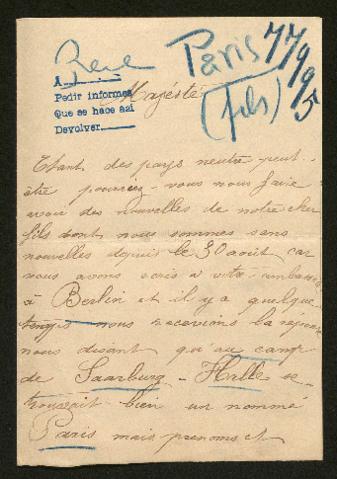 Paris 77995
(fils)
A
Pedir informes
Que se hace así
Devolver
Majesté
Etant des pays neutre peut-
être pourriez-vous nous faire
avoir des nouvelles de notre cher
fils dont nous sommes sans
nouvelles depuis le 30 août car
nous avons écris à votre ambassade
à Berlin et il y a quelque
temps nous recevions la réponse
nous disant qu'au camp
de Saarburg - Halle se
trouvait bien un nommé
Paris mais prenoms et